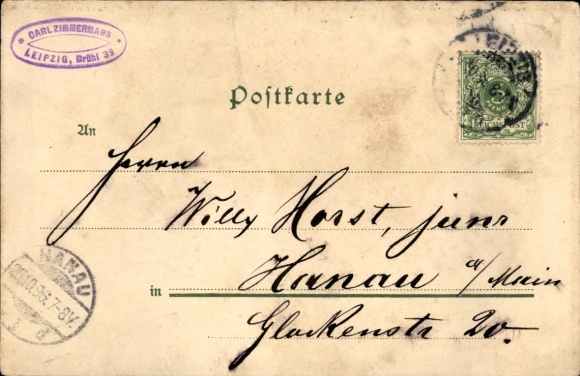 CARL ZIMMERMANN
LEIPZIG, Brühl 39
LEIPZIG
Postkarte
REICHSPOST
An
Herrn
Willy Horst, junr
Hanau a/Main
in
Glockenstr 20.
HANAU
7-8V.